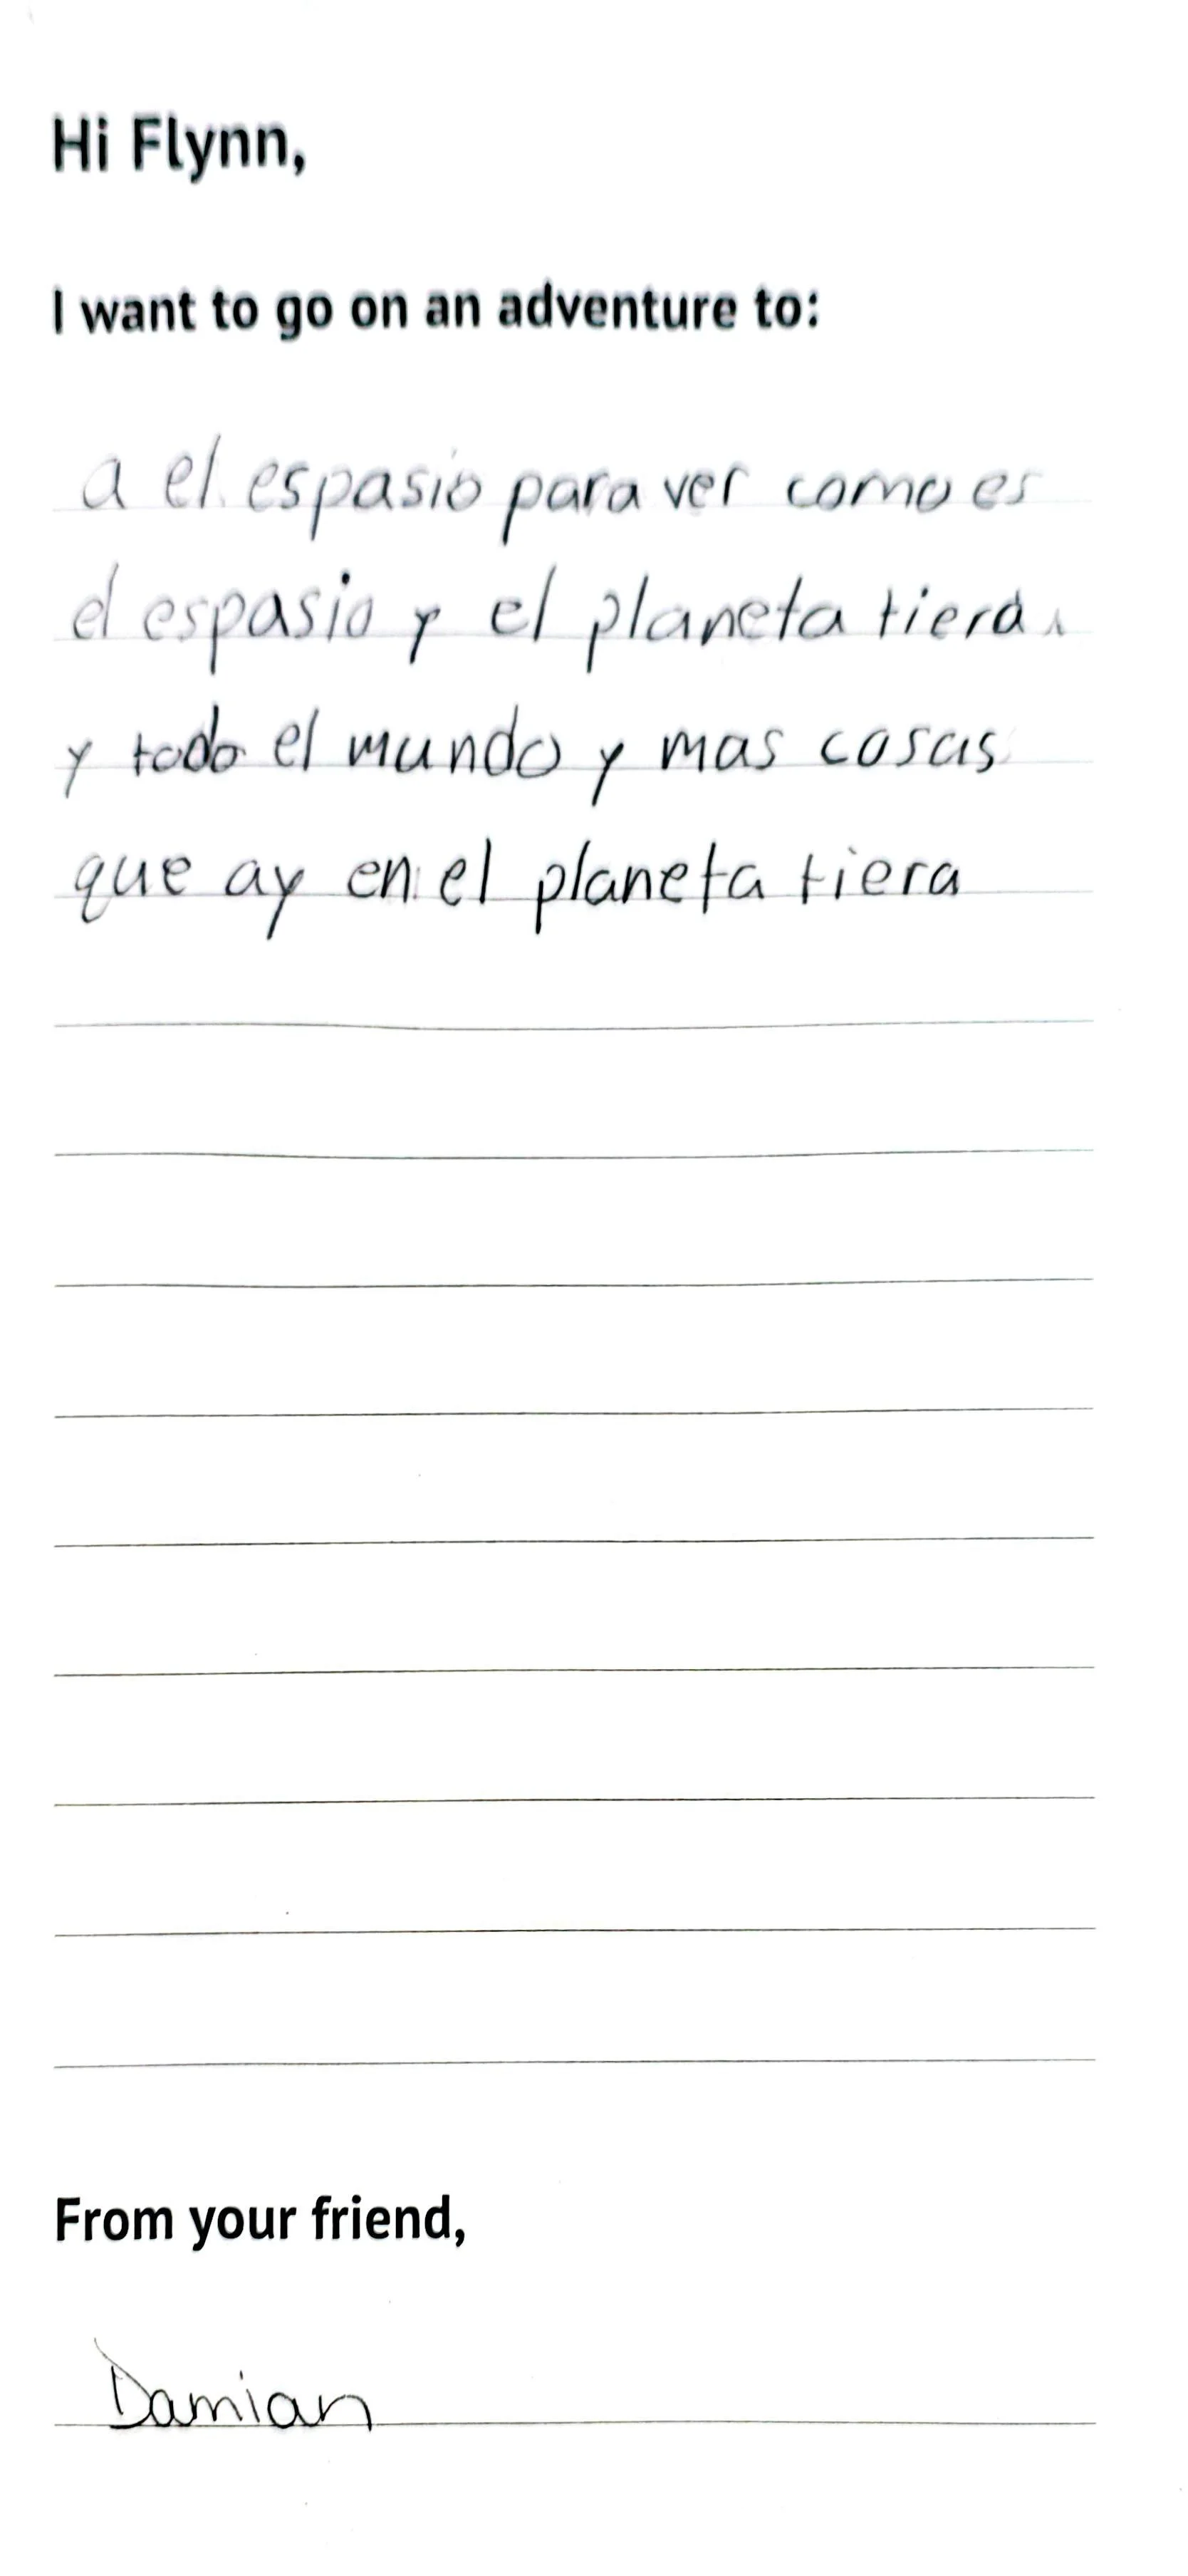 Hi Flynn,
I want to go on an adventure to:
a el espasio para ver como es
el espasio y el planeta tiera
y todo el mundo y mas cosas
que ay en el planeta tiera
From your friend,
Damian